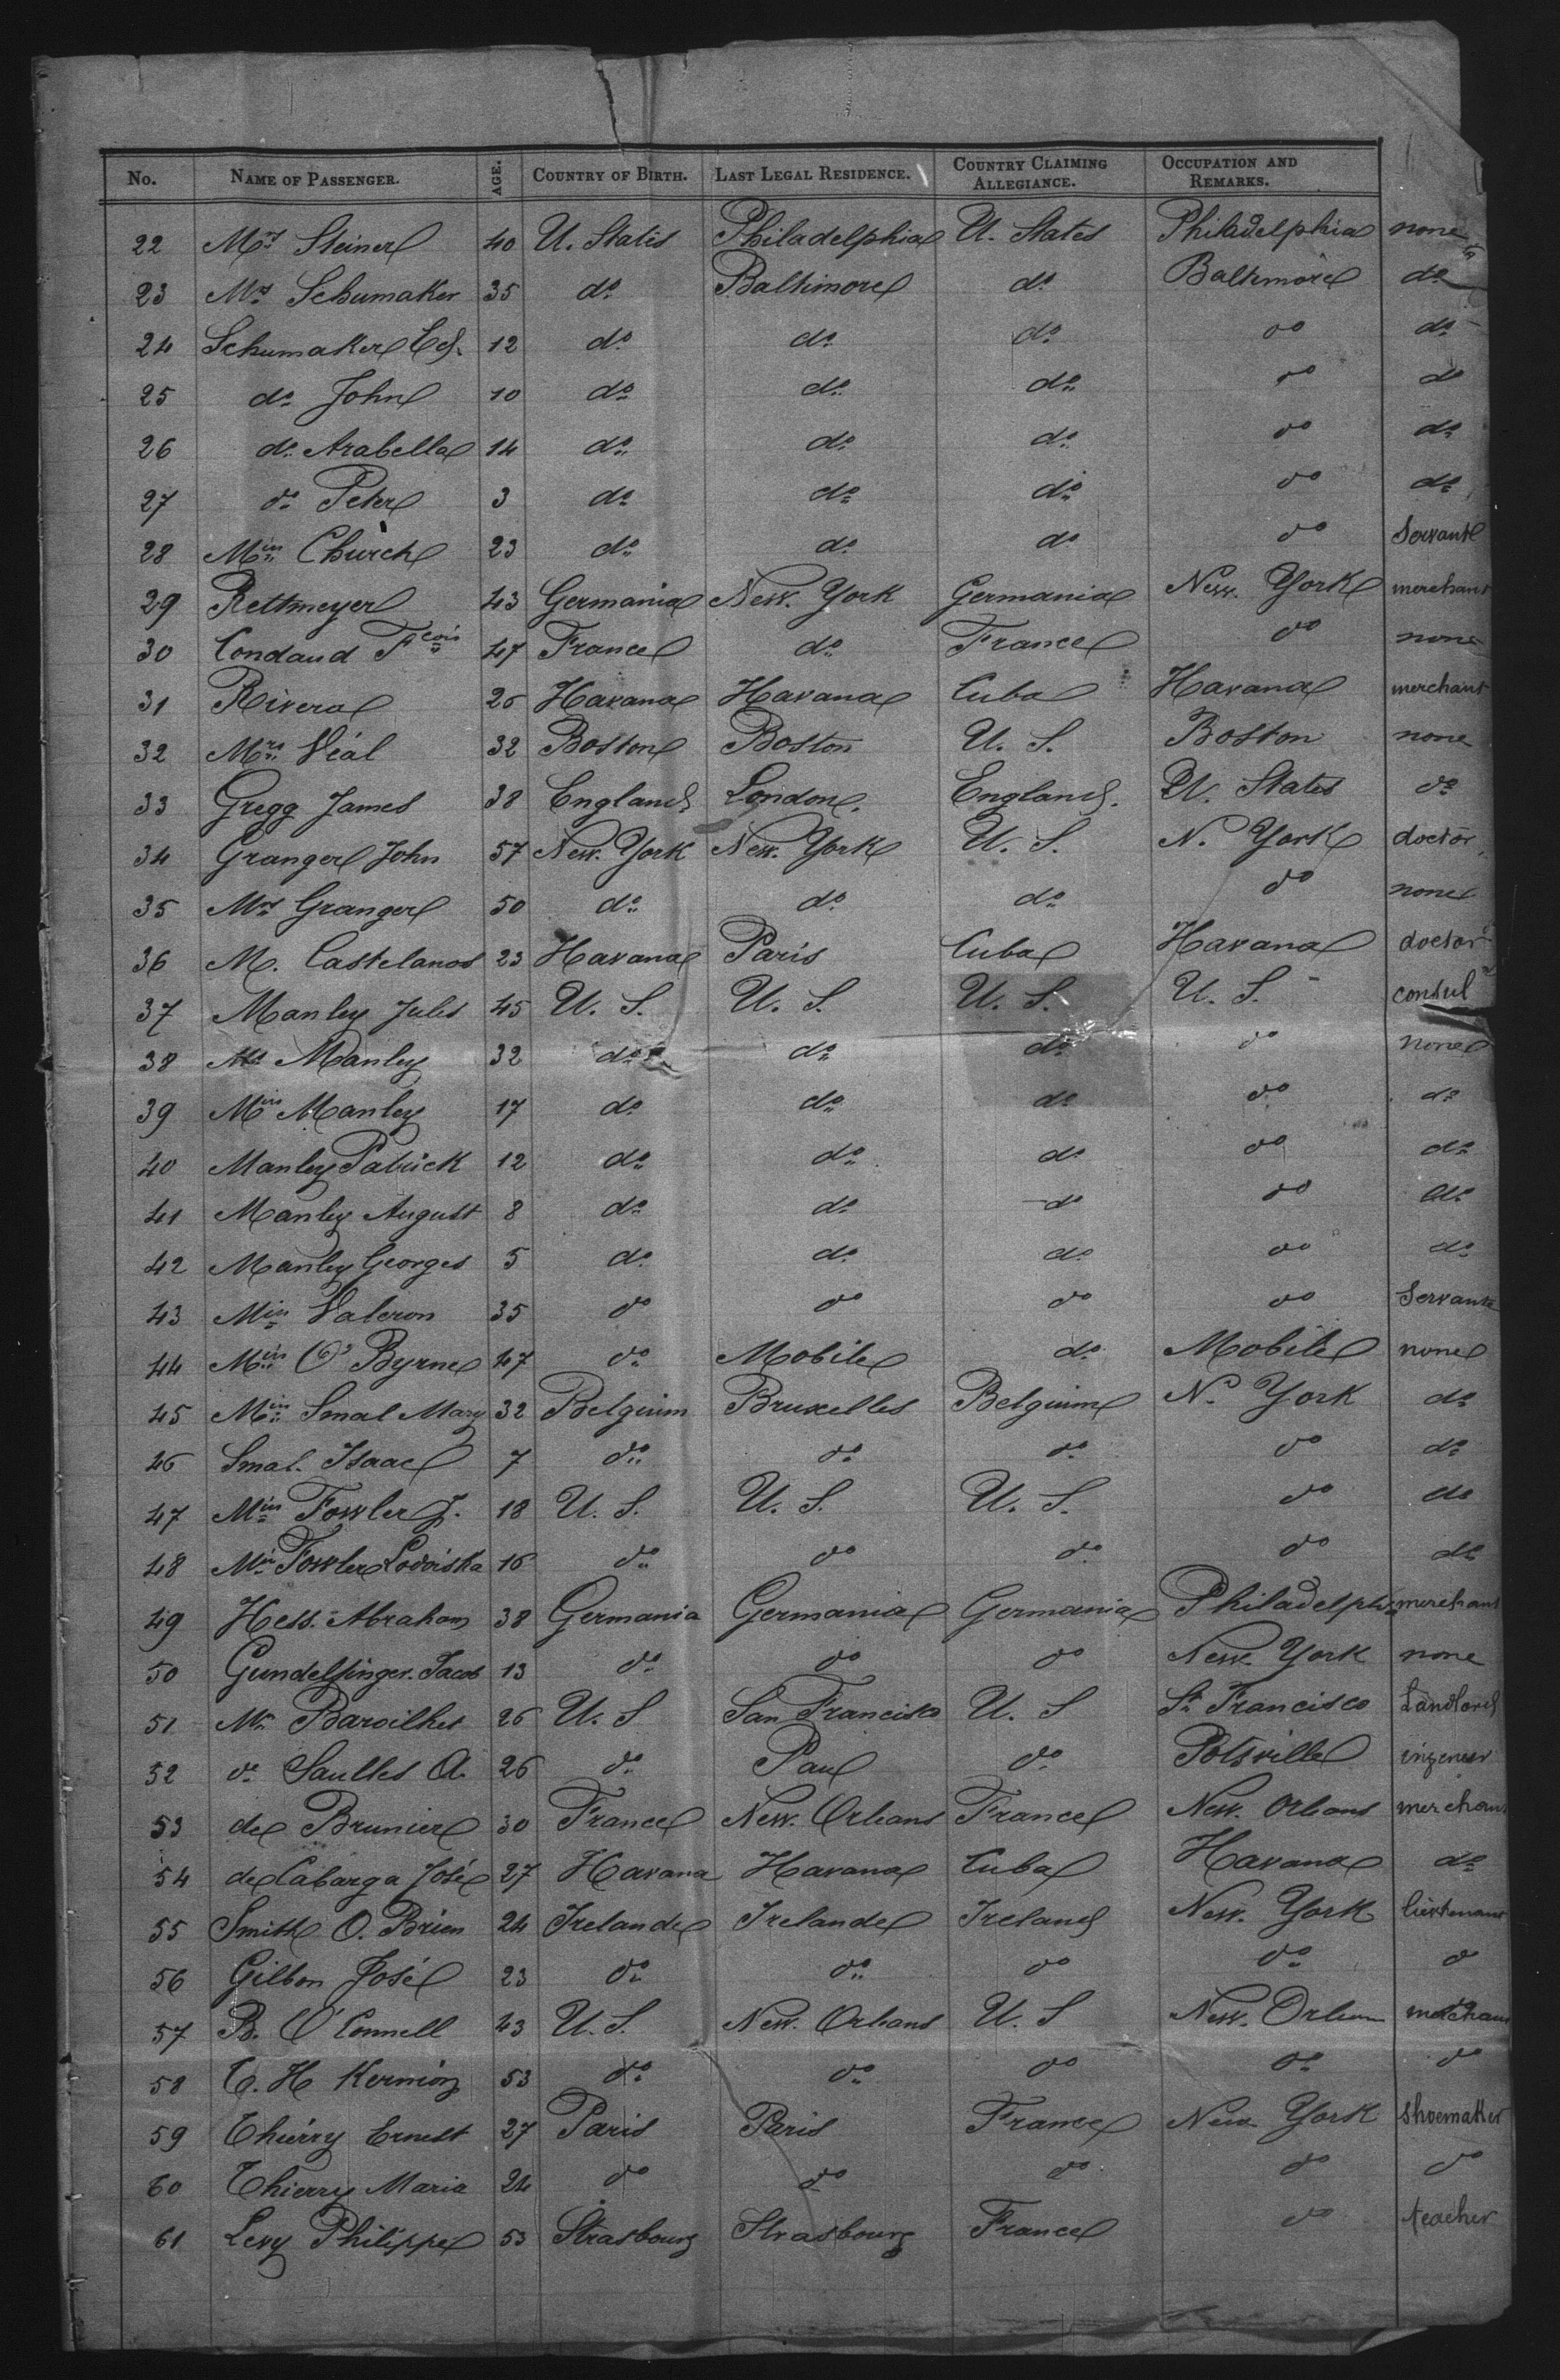 No. NAME OF PASSENGER. AGE. COUNTRY OF BIRTH. LAST LEGAL RESIDENCE. COUNTRY CLAIMING ALLEGIANCE. OCCUPATION AND REMARKS.
22 Mrs Steiner 40 U. States Philadelphia U. States Philadelphia none
23 Mrs Schumaker 35 do Baltimore do Baltimore do
24 Schumaker 12 do do do do do
25 do John 10 do do do do do
26 do Arabella 14 do do do do do
27 do Peter 3 do do do do do
28 Miss Church 23 do do do do Servante
29 Rettmeyer 43 Germania New. York Germania New. York merchant
30 Condaud Fcois 47 France do France do none
31 Rivera 26 Havana Havana Cuba Havana merchant
32 Mrs Vial 32 Boston Boston U. S. Boston none
33 Gregg James 38 England London. England. U. States do
34 Granger John 57 New. York New. York U. S. N. York doctor
35 Mrs Granger 50 do do do do none
36 M. Castelanos 23 Havana Paris Cuba Havana doctor
37 Manley Jules 45 U. S. U. S. U. S. U. S. consul
38 Mrs Manley 32 do do do do none
39 Miss Manley 17 do do do do do
40 Manley Patrick 12 do do do do do
41 Manley August 8 do do do do do
42 Manley Georges 5 do do do do do
43 Miss Valeron 35 do do do do Servante
44 Miss O' Byrne 47 do Mobile do Mobile none
45 Miss Smal Mary 32 Belgium Bruxelles Belgium N. York do
46 Smal. Isaac 7 do do do do do
47 Miss Fowler J. 18 U. S. U. S. U. S. do do
48 Miss Fowler Lodoiska 16 do do do do do
49 Hess. Abraham 38 Germania Germania Germania Philadelphia merchant
50 Gundelfinger. Jacob 13 do do do New. York none
51 Mr Baroilhet 26 U. S San Francisco U. S Sn Francisco Landlord
52 de Saulles A. 26 do Pau do Potsville ingeneer
53 de Brunier 30 France New. Orleans France New. Orleans merchant
54 de Cabarga José 27 Havana Havana Cuba Havana do
55 Smith O. Brien 24 Irelande Irelande Ireland New. York lieutenant
56 Gilbon José 23 do do do do do
57 B. O'Connell 43 U. S. New. Orleans U. S New. Orleans merchant
58 T. H Kernion 53 do do do do do
59 Thierry Ernest 27 Paris Paris France New York shoemaker
60 Thierry Maria 24 do do do do do
61 Levy Philippe 53 Strasbourg Strasbourg France do teacher